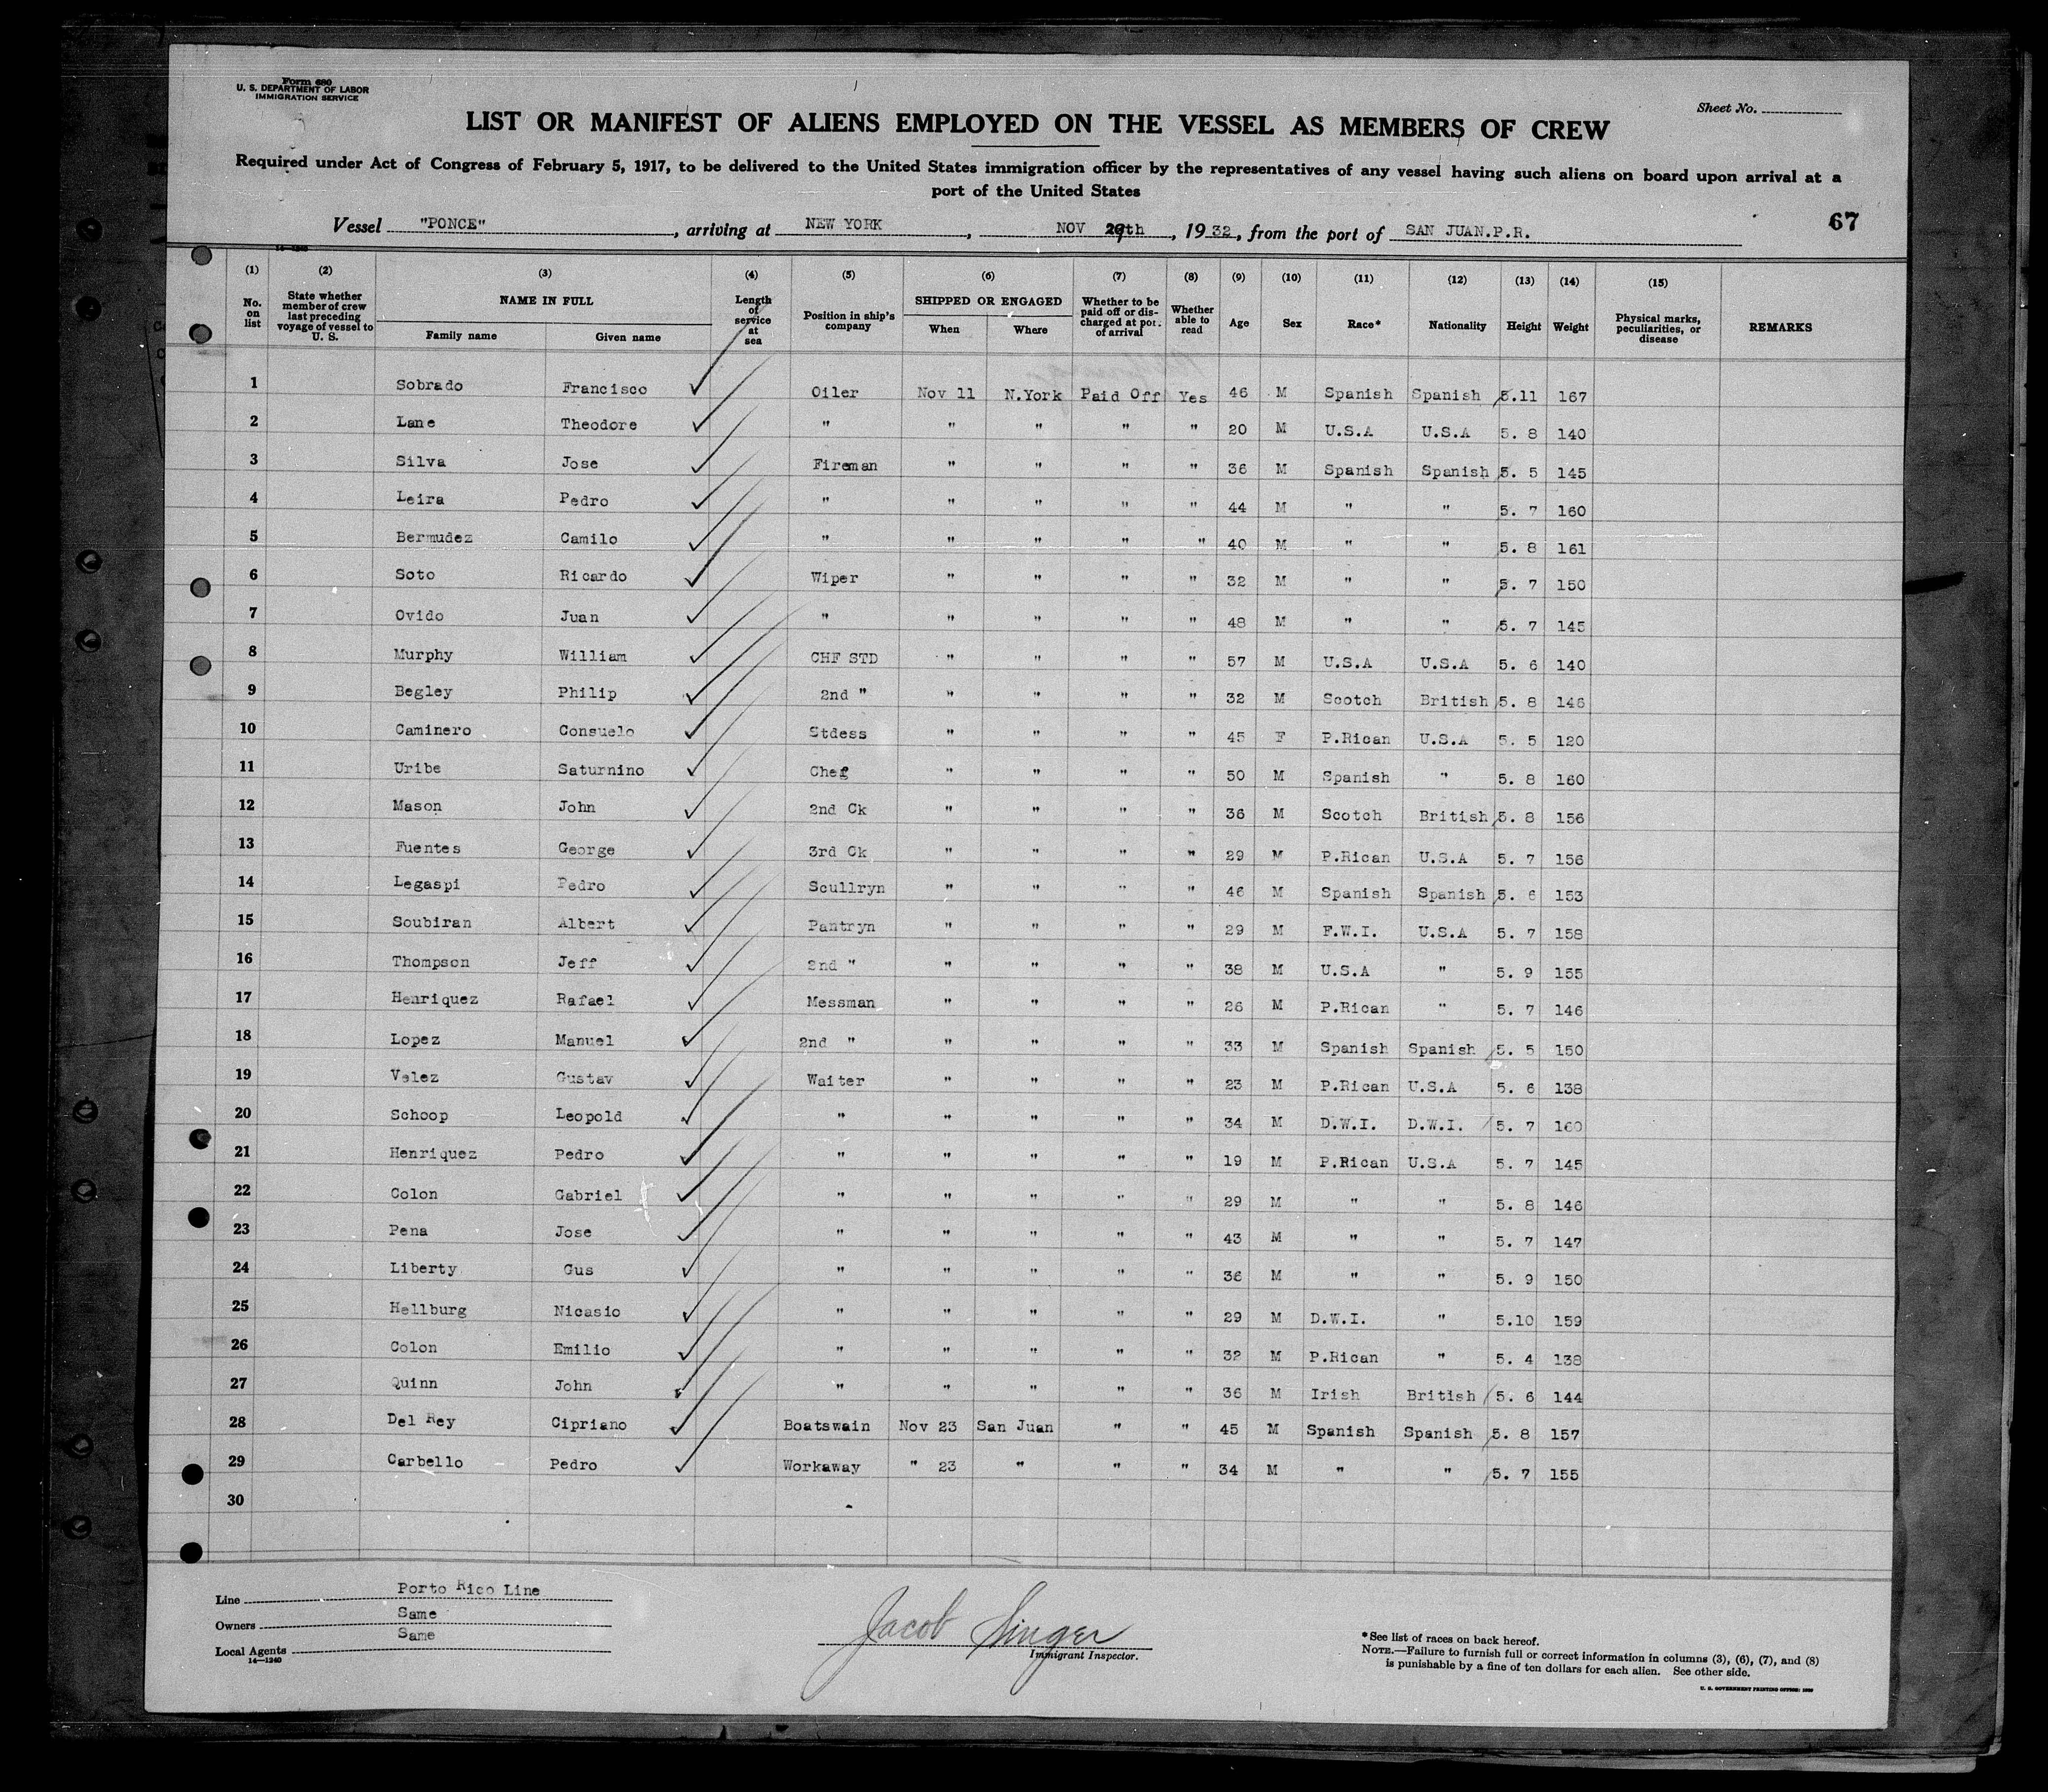 Form 680
U. S. DEPARTMENT OF LABOR
IMMIGRATION SERVICE
Sheet No.
LIST OR MANIFEST OF ALIENS EMPLOYED ON THE VESSEL AS MEMBERS OF CREW
Required under Act of Congress of February 5, 1917, to be delivered to the United States immigration officer by the representatives of any vessel having such aliens on board upon arrival at a
port of the United States
67
Vessel "PONCE", arriving at NEW YORK, NOV 29th, 1932, from the port of SAN JUAN.P.R.
14—1240
(1) (2) (3) (4) (5) (6) (7) (8) (9) (10) (11) (12) (13) (14) (15)
No. on list State whether member of crew last preceding voyage of vessel to U. S. NAME IN FULL Family name Given name Length of service at sea Position in ship's company SHIPPED OR ENGAGED When Where Whether to be paid off or discharged at port of arrival Whether able to read Age Sex Race* Nationality Height Weight Physical marks, peculiarities, or disease REMARKS
1 Sobrado Francisco Oiler Nov 11 N.York Paid Off Yes 46 M Spanish Spanish 5.11 167
2 Lane Theodore " " " " " 20 M U.S.A U.S.A 5. 8 140
3 Silva Jose Fireman " " " " 36 M Spanish Spanish 5. 5 145
4 Leira Pedro " " " " " 44 M " " 5. 7 160
5 Bermudez Camilo " " " " " 40 M " " 5. 8 161
6 Soto Ricardo Wiper " " " " 32 M " " 5. 7 150
7 Ovido Juan " " " " " 48 M " " 5. 7 145
8 Murphy William CHF STD " " " " 57 M U.S.A U.S.A 5. 6 140
9 Begley Philip 2nd " " " " " 32 M Scotch British 5. 8 146
10 Caminero Consuelo Stdess " " " " 45 F P.Rican U.S.A 5. 5 120
11 Uribe Saturnino Chef " " " " 50 M Spanish " 5. 8 160
12 Mason John 2nd Ck " " " " 36 M Scotch British 5. 8 156
13 Fuentes George 3rd Ck " " " " 29 M P.Rican U.S.A 5. 7 156
14 Legaspi Pedro Scullryn " " " " 46 M Spanish Spanish 5. 6 153
15 Soubiran Albert Pantryn " " " " 29 M F.W.I. U.S.A 5. 7 158
16 Thompson Jeff 2nd " " " " " 38 M U.S.A " 5. 9 155
17 Henriquez Rafael Messman " " " " 26 M P.Rican " 5. 7 146
18 Lopez Manuel 2nd " " " " " 33 M Spanish Spanish 5. 5 150
19 Velez Gustav Waiter " " " " 23 M P.Rican U.S.A 5. 6 138
20 Schoop Leopold " " " " " 34 M D.W.I. D.W.I. 5. 7 160
21 Henriquez Pedro " " " " " 19 M P.Rican U.S.A 5. 7 145
22 Colon Gabriel " " " " " 29 M " " 5. 8 146
23 Pena Jose " " " " " 43 M " " 5. 7 147
24 Liberty Gus " " " " " 36 M " " 5. 9 150
25 Hellburg Nicasio " " " " " 29 M D.W.I. " 5.10 159
26 Colon Emilio " " " " " 32 M P.Rican " 5. 4 138
27 Quinn John " " " " " 36 M Irish British 5. 6 144
28 Del Rey Cipriano Boatswain Nov 23 San Juan " " 45 M Spanish Spanish 5. 8 157
29 Carbello Pedro Workaway " 23 " " " 34 M " " 5. 7 155
30
Line Porto Rico Line
Owners Same
Local Agents Same
14—1240
Jacob Singer
Immigrant Inspector.
*See list of races on back hereof.
NOTE.—Failure to furnish full or correct information in columns (3), (6), (7), and (8)
is punishable by a fine of ten dollars for each alien. See other side.
U. S. GOVERNMENT PRINTING OFFICE: